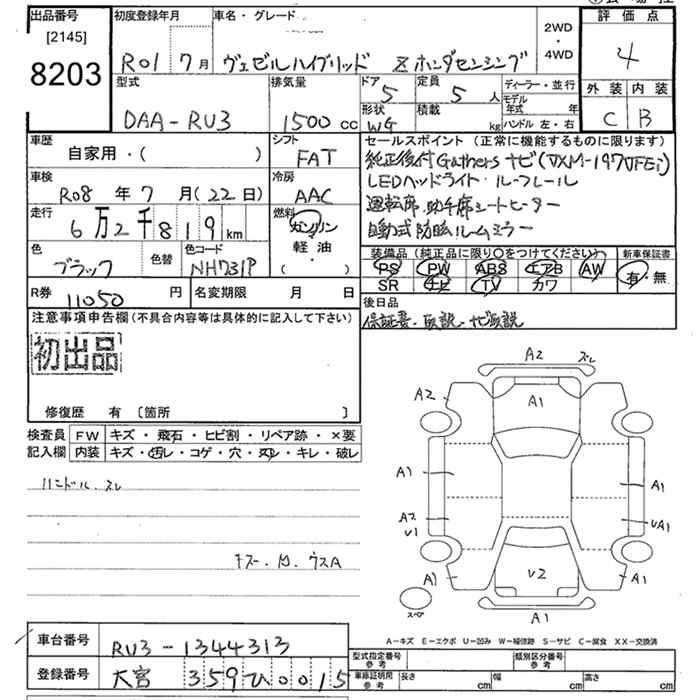 出品番号 初度登録年月 車名・グレード 2WD・4WD 評価点
[2145]
8203 R01 7月 ヴェゼルハイブリッド Z ホンダセンシング 4
型式 排気量 ドア 定員 ディーラー・並行 外装 内装
DAA-RU3 1500cc 5 5人 モデル年式 年
形状 積載 C B
WG kg ハンドル 左・右
車歴 シフト セールスポイント(正常に機能するものに限ります)
自家用・( ) FAT 純正後付Gathersナビ(VXM-197VFEi)
車検 冷房 LEDヘッドライト・ルーフレール
R08年7月(22日) AAC 運転席・助手席シートヒーター
走行 燃料 自動式防眩ルームミラー
6万2千819km ガソリン
軽油・( )
色 色替 色コード 装備品(純正品に限り〇をつけてください) 新車保証書
ブラック NH731P PS PW ABS エアB AW 有・無
SR ナビ TV カワ
R券 11050円 名変期限 月 日 後日品
保証書・取説・ナビ取説
注意事項申告欄(不具合内容等は具体的に記入して下さい)
初出品
修復歴 有 〔箇所 〕
検査員記入欄 FW キズ・飛石・ヒビ割・リペア跡・×要
内装 キズ・汚レ・コゲ・穴・スレ・キレ・破レ
ハンドル スレ
キズ・凹・ウスA
A2 ズレ
A2 A1
A1 A1
A2 U1 UA1
A1 U2 A1
スペア A1
A-キズ E-エクボ U-凹み W-補修跡 S-サビ C-腐食 XX-交換済
車台番号 RU3-1344313
登録番号 大宮 359 ひ 0015
型式指定番号 参考 類別区分番号 参考
車庫証明用 参考 長さ cm 幅 cm 高さ cm